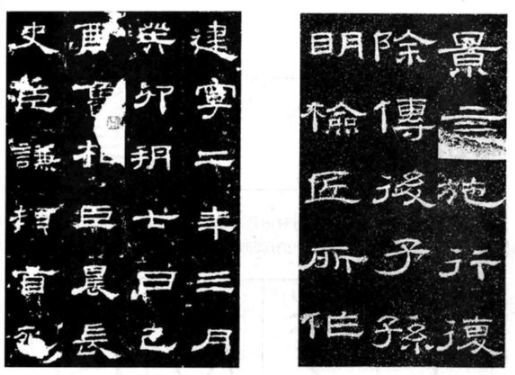 建寧二年三月
癸卯朔七日己
酉魯相臣晨長
史臣謙頓首死
景施行復
除傳後子孫
明檢匠所作